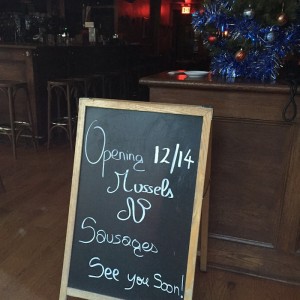 Opening 12/14
Mussels
N
Sausages
See you Soon!